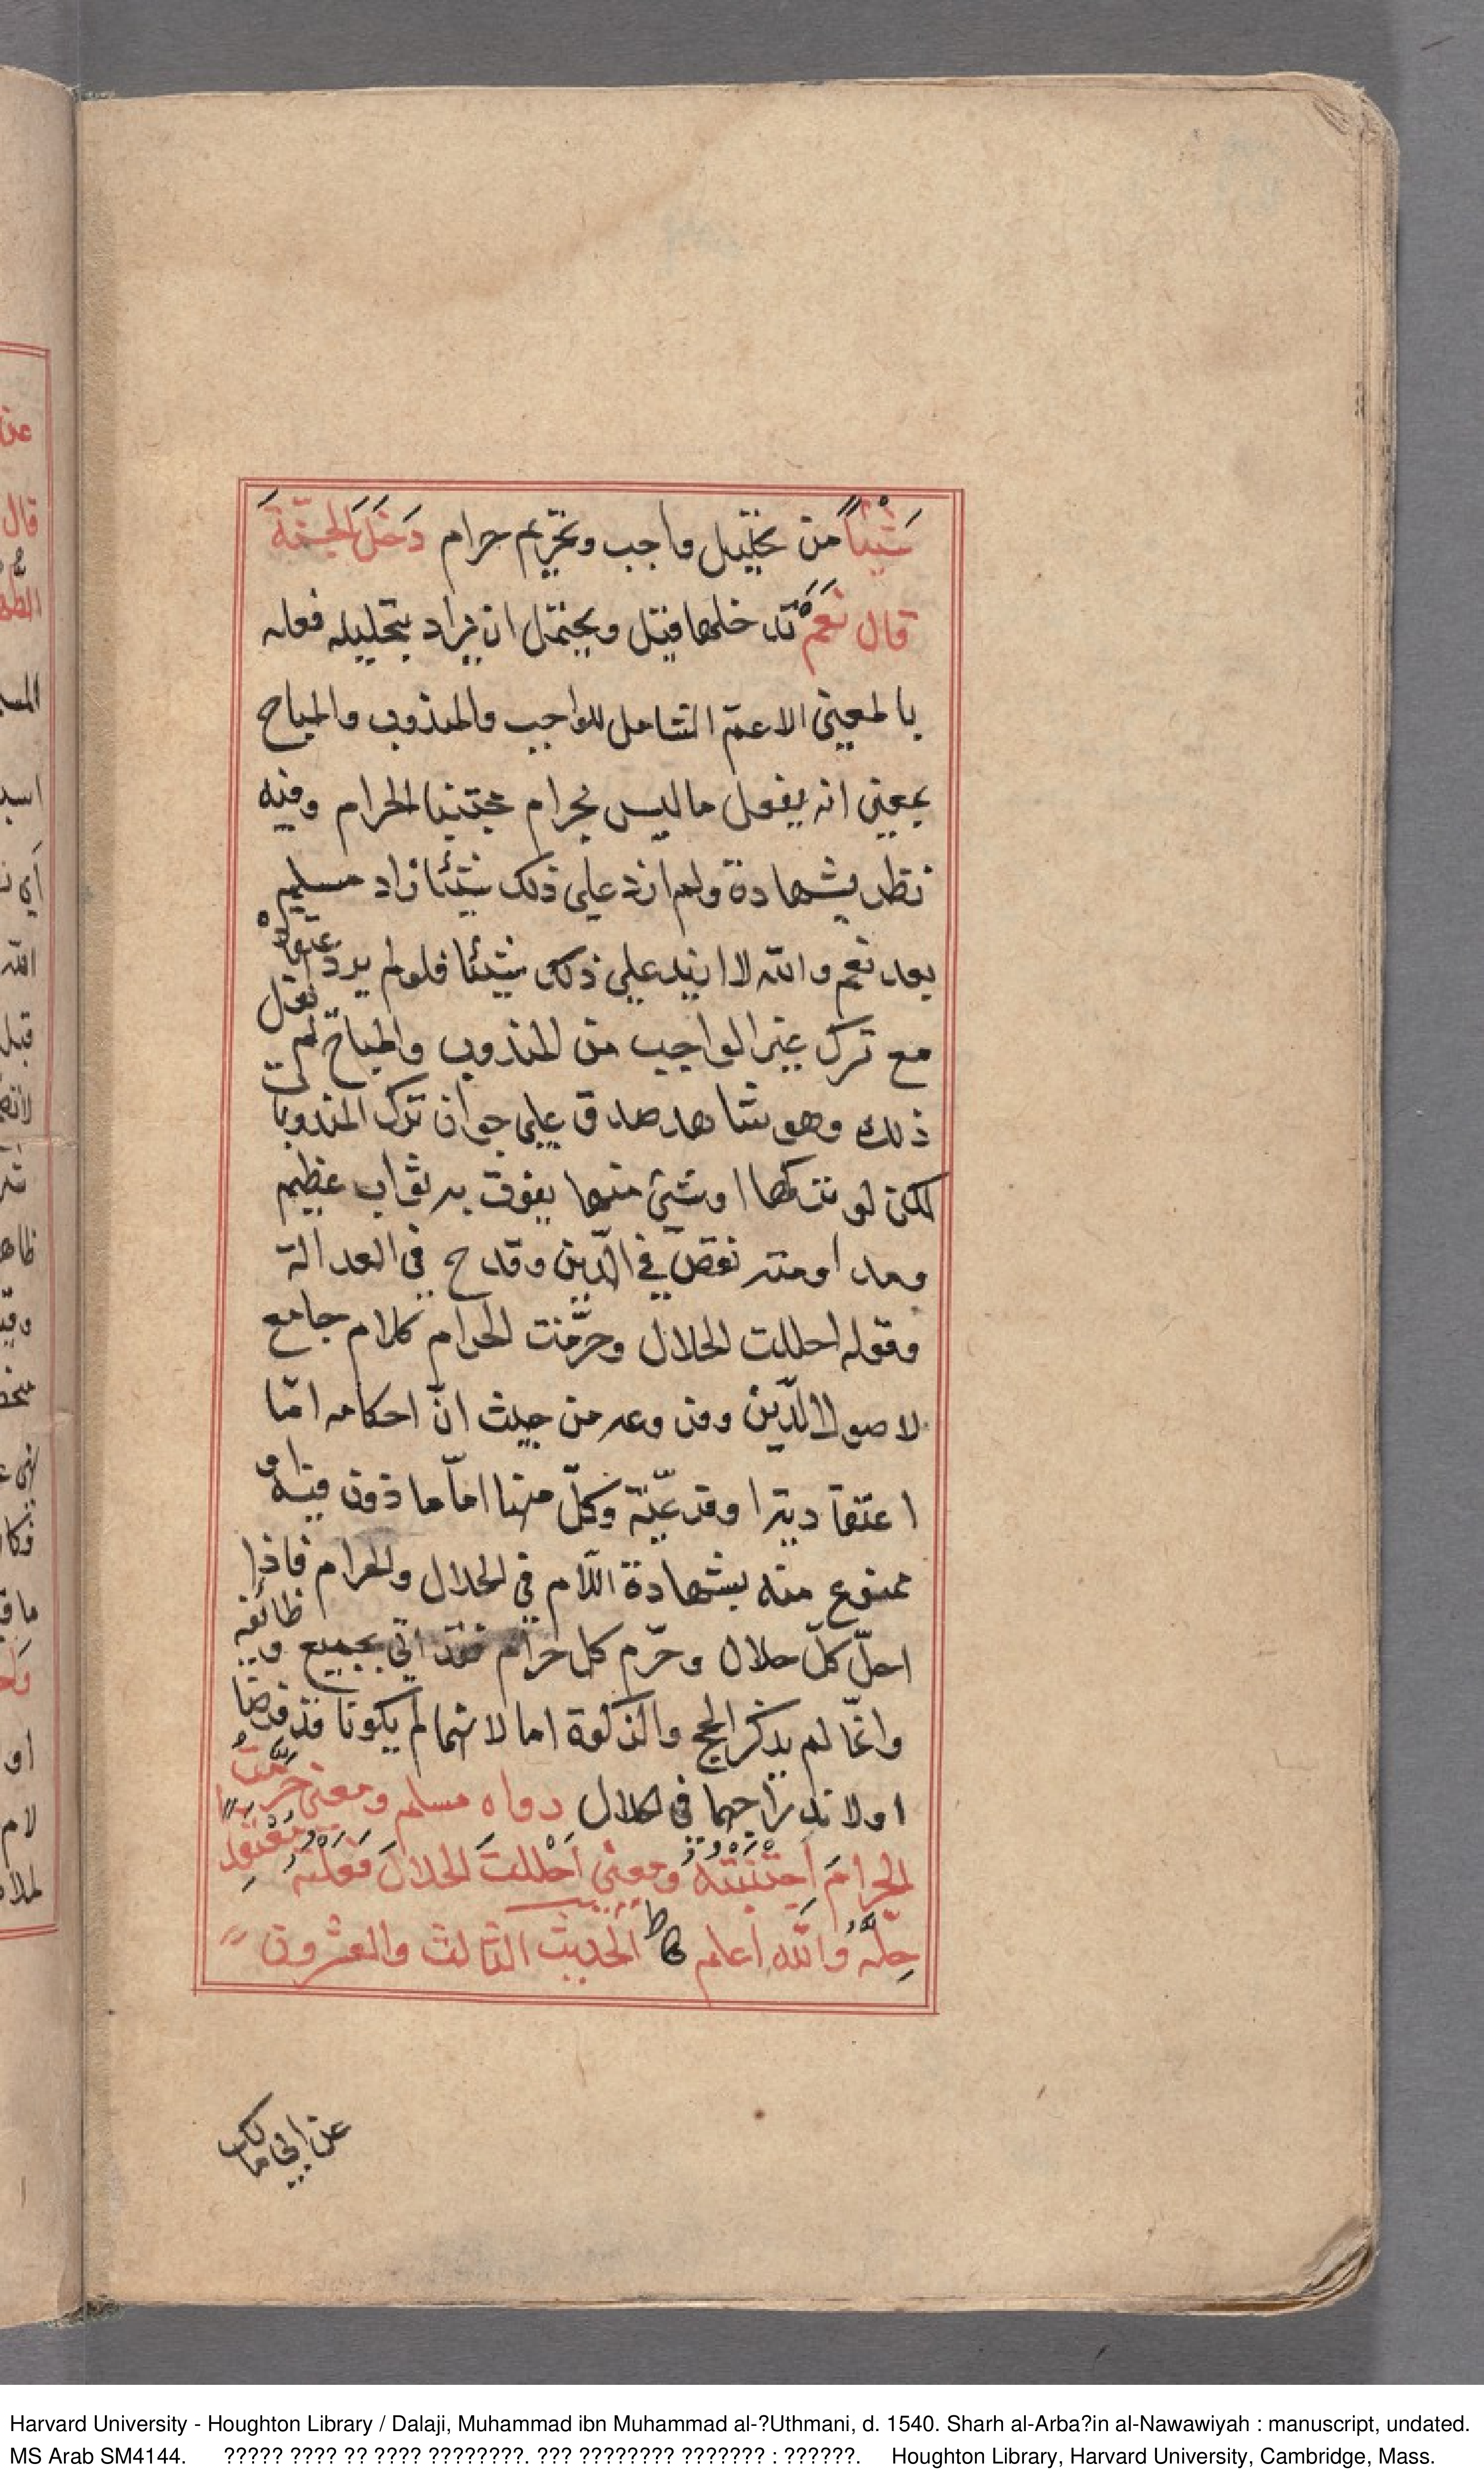 شَيْئاً من تحليل واجب وتحريم حرام دَخَلَ الجنّة
قال نَعَمْ تدخلها قيل ويحتمل ان يراد بتحليله فعله
بالمعنى الاعمّ الشامل للواجب والمندوب والمباح
بمعنى انه يفعل ما ليس بحرام مجتنبا الحرام وفيه
نظر بشهادة ولم ازد على ذلك شيئا زاد مسلم
بعد نعم والله لا ازيد على ذلك شيئا فلو لم يرد
مع ترك غير الواجب من المندوب والمباح لم يقل
ذلك وهو شاهد صدق على جواز ترك المندوبات
لكن لو تركها او شئ منها يفوق به ثواب عظيم
ومداومته نقص في الدّين وقدح في العدالة
وقوله احللت الحلال وحرّمت الحرام كلام جامع
لاصول الدّين وفروعه من حيث انّ احكامه امّا
اعتقاديترا وفرعيّة وكلّ منها امّا ماذون فيه او
ممنوع منه بشهادة اللّام في الحلال والحرام فاذا
احلّ كلّ حلال وحرّم كل حرام فقد اتى بجميع وظائفه
وانّما لم يذكر الحج والزكوة اما لانهما لم يكونا قد فرضا
اولا ندراجهما في الحلال رواه مسلم ومعنى حَرَّمْتُ
الحرامَ اجْتَنَبْتُهُ ومعنى اَحْلَلتَ الحلالَ فَعَلْتُهُ مُعْتَقِداً
حِلَّهُ وَاللّه اعلم الحديث الثالث والعشرون
عن ابي مالك
Harvard University - Houghton Library / Dalaji, Muhammad ibn Muhammad al-?Uthmani, d. 1540. Sharh al-Arba?in al-Nawawiyah : manuscript, undated.
MS Arab SM4144. ????? ???? ?? ???? ????????. ??? ???????? ??????? : ??????. Houghton Library, Harvard University, Cambridge, Mass.